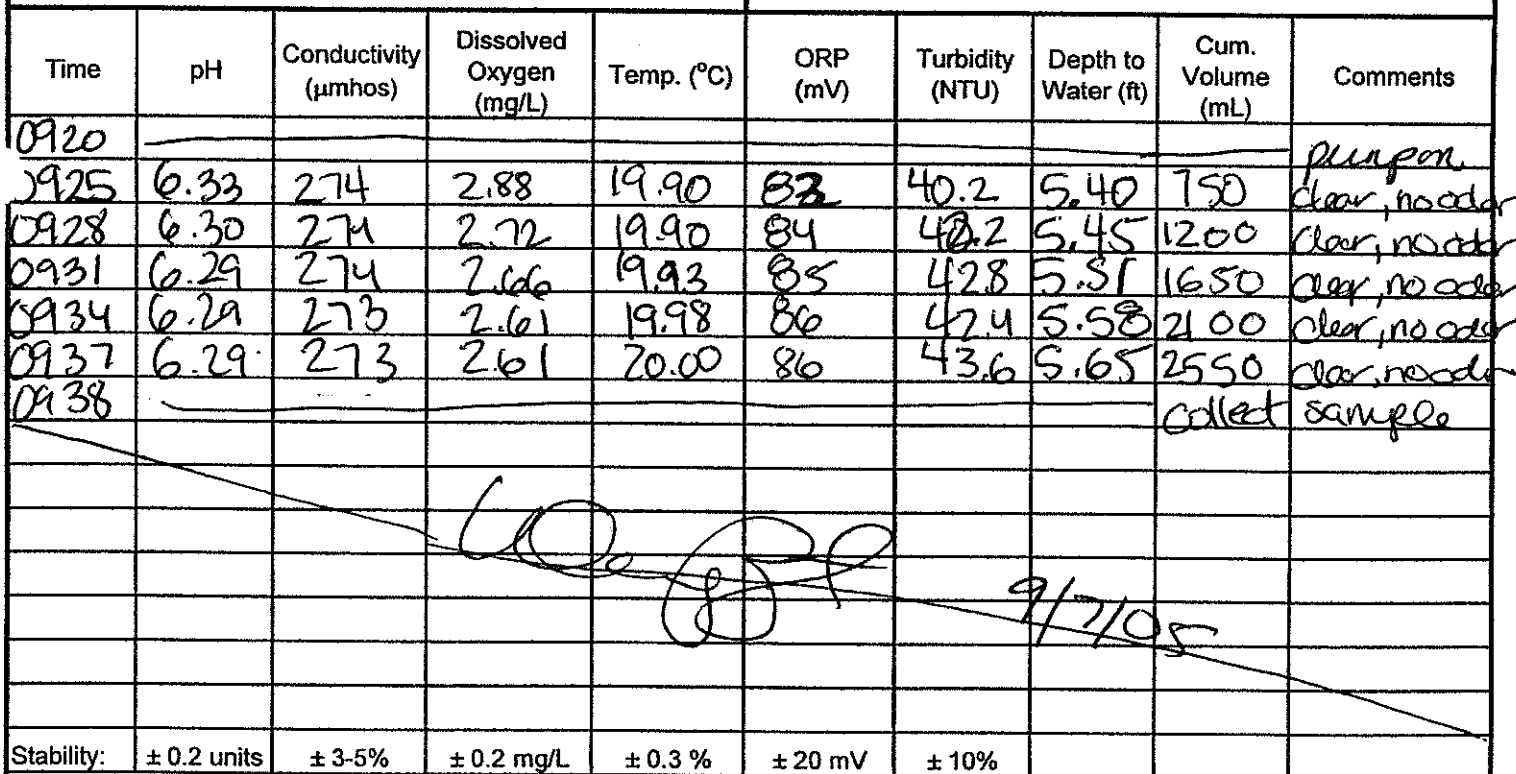 Time | pH | Conductivity (µmhos) | Dissolved Oxygen (mg/L) | Temp. (°C) | ORP (mV) | Turbidity (NTU) | Depth to Water (ft) | Cum. Volume (mL) | Comments
0920 pump on
0925 6.33 274 2.88 19.90 40.2 5.40 750 clear, no odor
0928 6.30 274 2.72 19.90 84 5.45 1200 clear, no odor
0931 6.29 274 2.66 19.93 85 42.8 5.51 1650 clear, no odor
0934 6.29 273 2.61 19.98 86 42.4 5.58 2100 clear, no odor
0937 6.29 273 2.61 20.00 86 43.6 5.65 2550 clear, no odor
0938 collect sample
9/7/05
Stability: ± 0.2 units ± 3-5% ± 0.2 mg/L ± 0.3 % ± 20 mV ± 10%